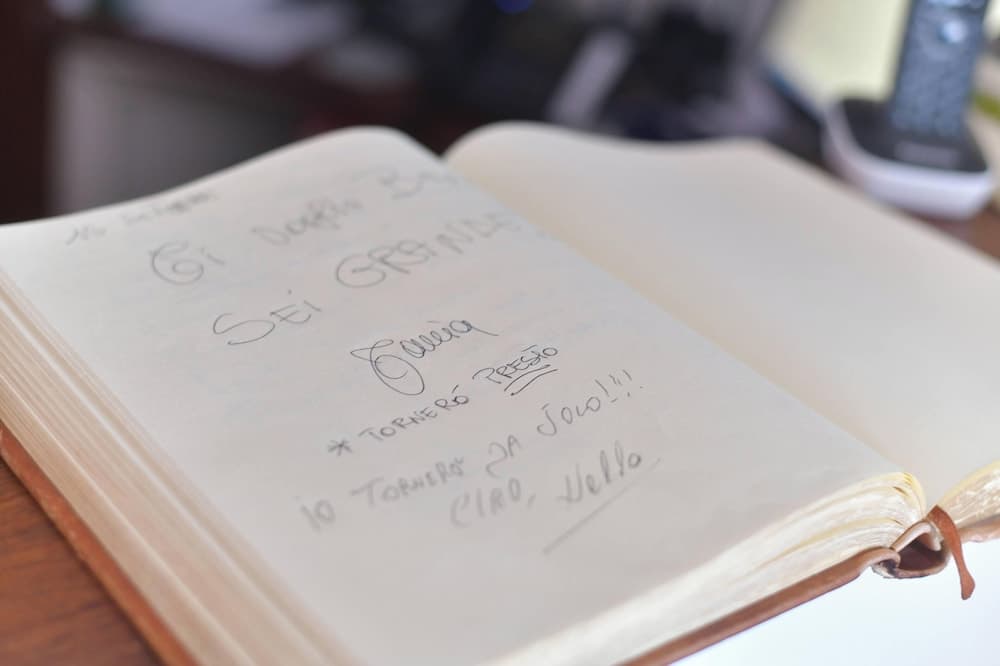 Ti
SEI GRANDE
Tania
* TORNERÓ PRESTO
iO TORNERO' DA SOLO!!!!
CIAO, Hella